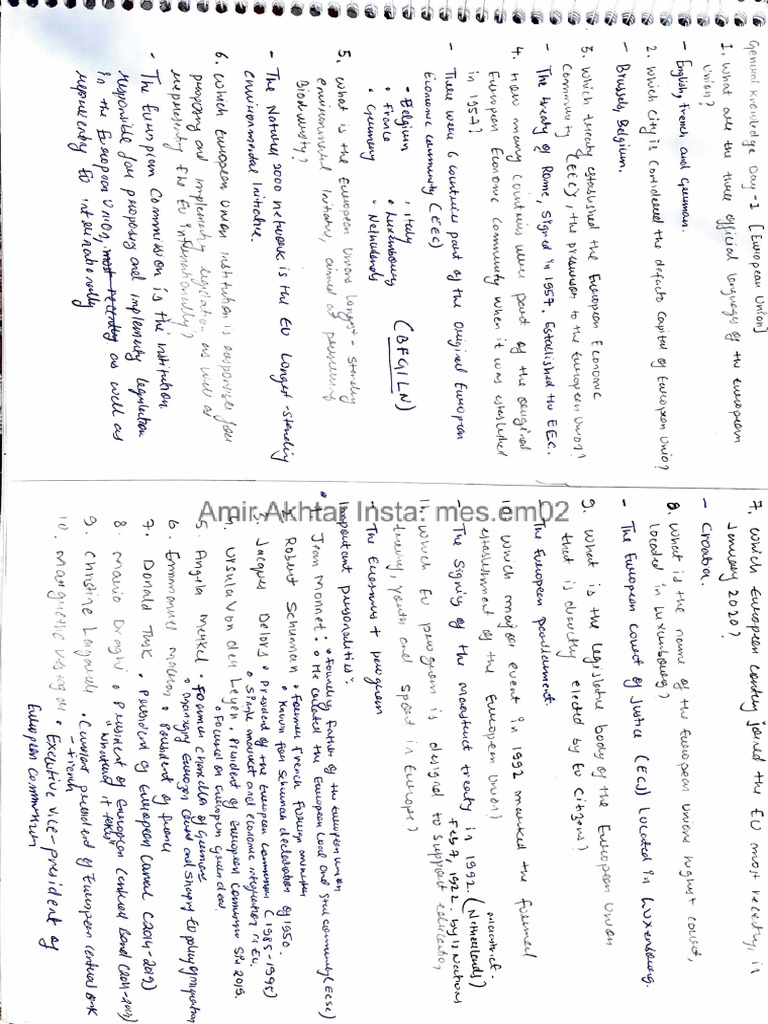 General Knowledge Day -1 [European Union]
1. What are the three official languages of the European
Union?
- English, French and German.
2. Which City is considered the defacto capital of European Union?
- Brussels, Belgium.
3. Which treaty established the European Economic
Community (EEC), the precursor to the European Union?
- The treaty of Rome, signed in 1957. Established the EEC.
4. How many countries were part of the original
European Economic Community when it was established
in 1957?
- There were 6 countries part of the original European
Economic community (EEC)
• Belgium • Italy
• France • Luxembourg (BFGILN)
• Germany • Netherlands
5. What is the European Unions longest-standing
environmental initiative, aimed at preserving
Biodiversity?
- The Natura 2000 network is the EU longest-standing
environmental Initiative.
6. Which European Union institution is responsible for
proposing and implementing legislation as well as
representing the EU internationally?
- The European Commission is the institution
responsible for proposing and implementing legislation
in the European Union, as well as
representing EU internationally
7. Which European Country joined the EU most recently, in
January 2020?
- Croatia.
8. What is the name of the European Unions highest court,
located in Luxembourg?
- The European Court of Justice (ECJ) located in Luxembourg.
9. What is the legislative body of the European Union
that is directly elected by EU citizens?
- The European parliament
10. Which major event in 1992 marked the formal
establishment of the European Union?
- The Signing of the Maastricht treaty in 1992. (Netherlands)
Maastricht.
Feb 7, 1992. by 12 Nations
11. Which EU program is designed to support education,
training, youth and sport in Europe?
- The Erasmus + program
Important personalities:
1. Jean Monnet: • Founding father of the European Union
• He created the European Coal and Steel Community (ECSC)
2. Robert Schuman • Former French Foreign minister
• Known for Schuman declaration of 1950.
3. Jacques Delors • President of the European Commission (1985-1995)
• Single market and economic integration in EU.
4. Ursula Von der Leyen. President of European Commission Sin 2019.
• Focused on European green deal.
5. Angela Merkel • Former Chancellor of Germany
• Managing Eurozone crisis and shaping EU policy of migration
6. Emmanuel Macron • President of France
7. Donald Tusk • President of European Council (2014-2019)
8. Mario Draghi • President of European Central Bank (2011-2019)
"Whatever it takes"
9. Christine Lagarde • Current president of European central bank
- French
10. Margrethe Vestager • Executive Vice-president of
European Commission
Amir Akhtar Insta: mes.em02